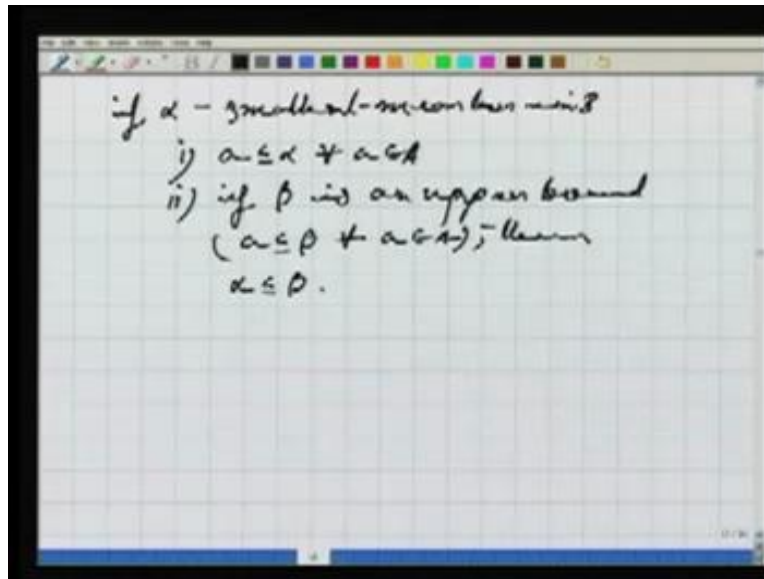 if α - smallest member in B
i) a ≤ α ∀ a ∈ A
ii) if β is an upper bound
( a ≤ β ∀ a ∈ A), then
α ≤ β.